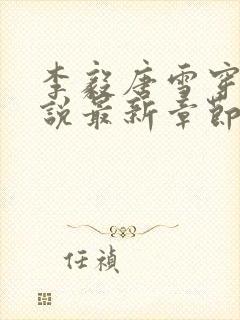 李毅唐雪穿
説最新章節
任禎